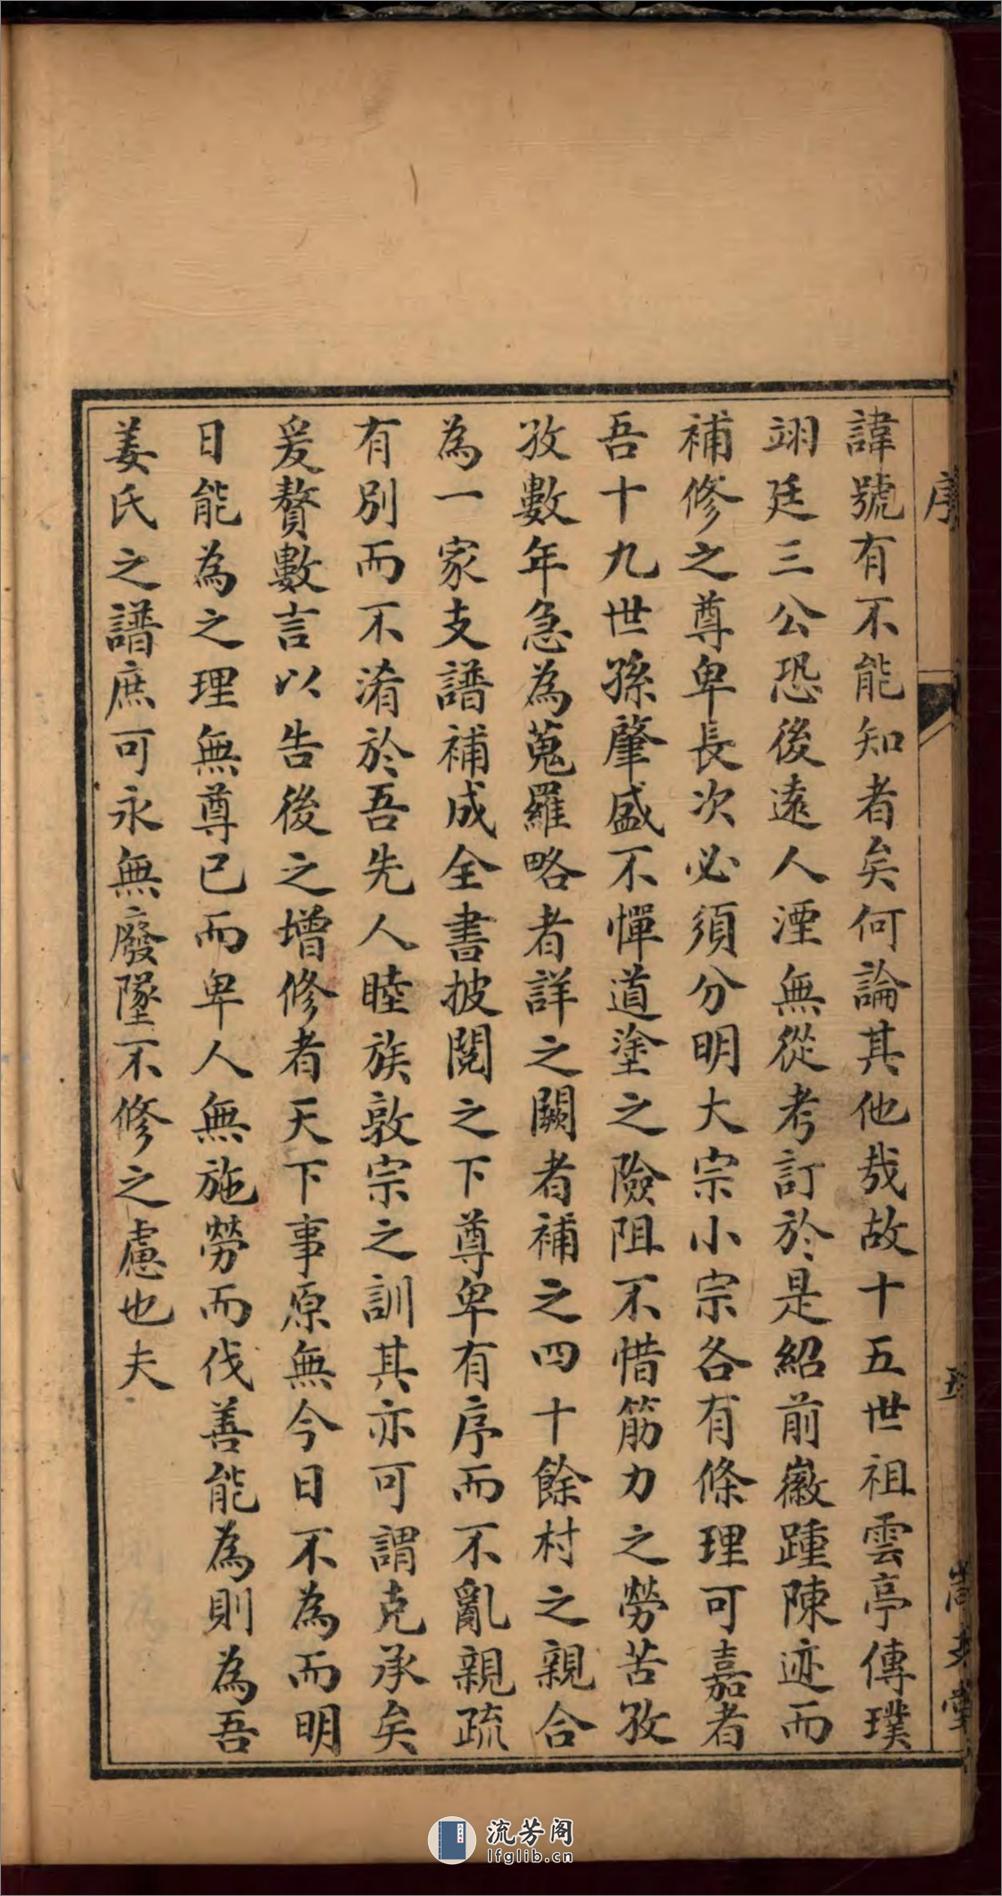 序
五
諱號有不能知者矣何論其他哉故十五世祖雲亭傳璞
翊廷三公恐後遠人湮無從考訂於是紹前徽踵陳迹而
補修之尊卑長次必須分明大宗小宗各有條理可嘉者
吾十九世孫肇盛不憚道塗之險阻不惜筋力之勞苦孜
孜數年急為蒐羅略者詳之闕者補之四十餘村之親合
為一家支譜補成全書披閱之下尊卑有序而不亂親疏
有別而不淆於吾先人睦族敦宗之訓其亦可謂克承矣
爰贅數言以告後之增修者天下事原無今日不為而明
日能為之理無尊已而卑人無施勞而伐善能為則為吾
姜氏之譜庶可永無廢墜不修之慮也夫
流芳阁
lfglib.cn